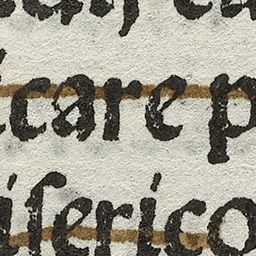 icare p
iſerico